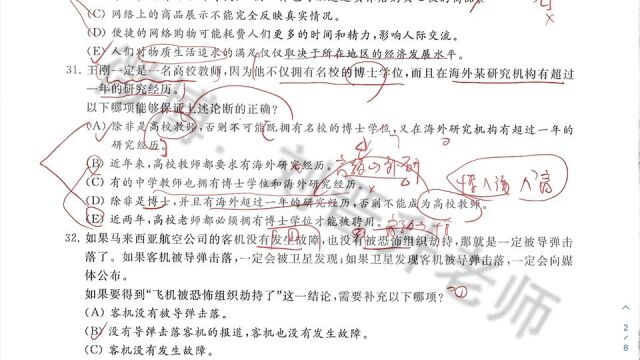 (C) 网络上的商品展示不能完全反映真实情况。
(D) 便捷的网络购物可能耗费人们更多的时间和精力,影响人际交流。
(E) 人们对物质生活追求的满足仅仅取决于所在地区的经济发展水平。
31. 王刚一定是一名高校教师,因为他不仅拥有名校的博士学位,而且在海外某研究机构有超过
一年的研究经历。
以下哪项能够保证上述论断的正确?
(A) 除非是高校教师,否则不可能既拥有名校的博士学位,又在海外研究机构有超过一年的
研究经历。
(B) 近年来,高校教师都要求有海外研究经历。
(C) 有的中学教师也拥有博士学位和海外研究经历。
(D) 除非是博士,并且有海外超过一年的研究经历,否则不能成为高校教师。
(E) 近两年,高校老师都必须拥有博士学位才能被聘用。
32. 如果马来西亚航空公司的客机没有发生故障,也没有被恐怖组织劫持,那就是一定被导弹击
落了。如果客机被导弹击落,一定会被卫星发现;如果卫星发现客机被导弹击落,一定会向媒
体公布。
如果要得到“飞机被恐怖组织劫持了”这一结论,需要补充以下哪项?
(A) 客机没有被导弹击落。
(B) 没有导弹击落客机的报道,客机也没有发生故障。
(C) 客机没有发生故障。
2
/
8